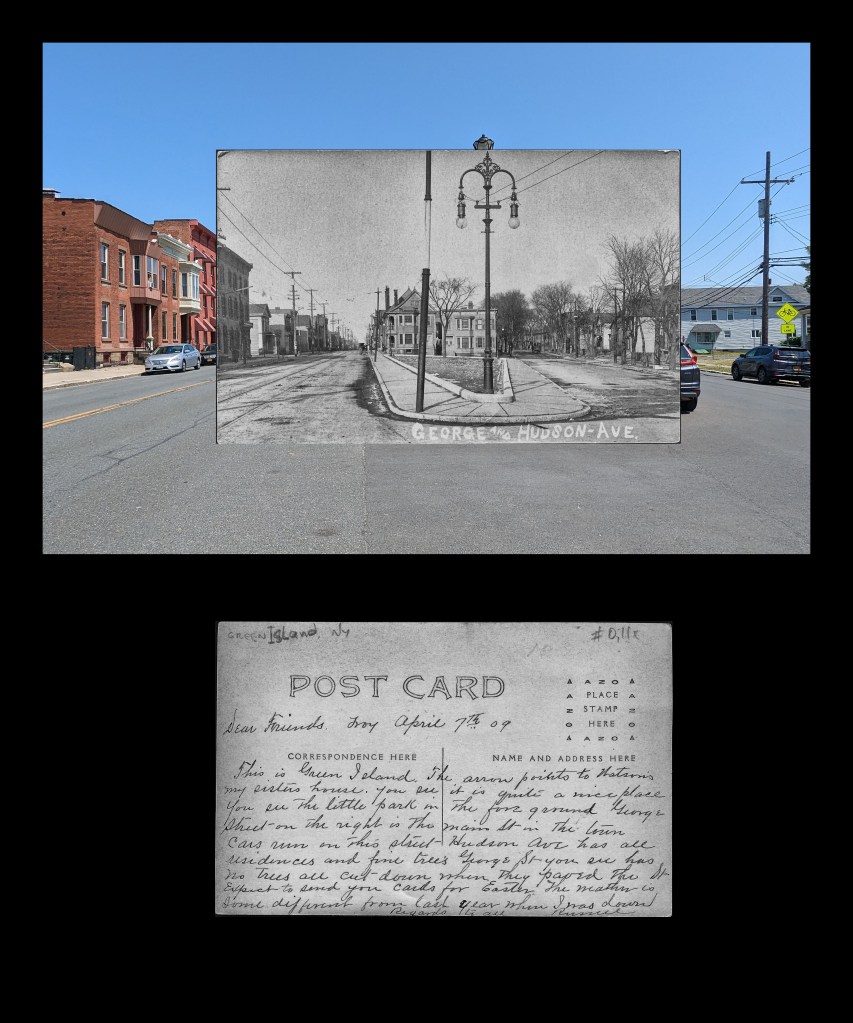 GEORGE AND HUDSON-AVE.
GREEN ISLand, NY
# 0,11x
POST CARD
AZO
PLACE
STAMP
HERE
AZO
Dear Friends. Troy April 7TH 09
CORRESPONDENCE HERE
NAME AND ADDRESS HERE
This is Green Island. The arrow points to Watsons
my sisters house. you see it is quite a nice place
You see the little park in the fore ground George
Street-on the right is the main St in the town
Cars run on this street-Hudson Ave has all
residences and fine trees George St you see has
no trees all cut down when they paved the St
Expect to send you cards for Easter The is
some different from last year when I was down
Regards to all Russell